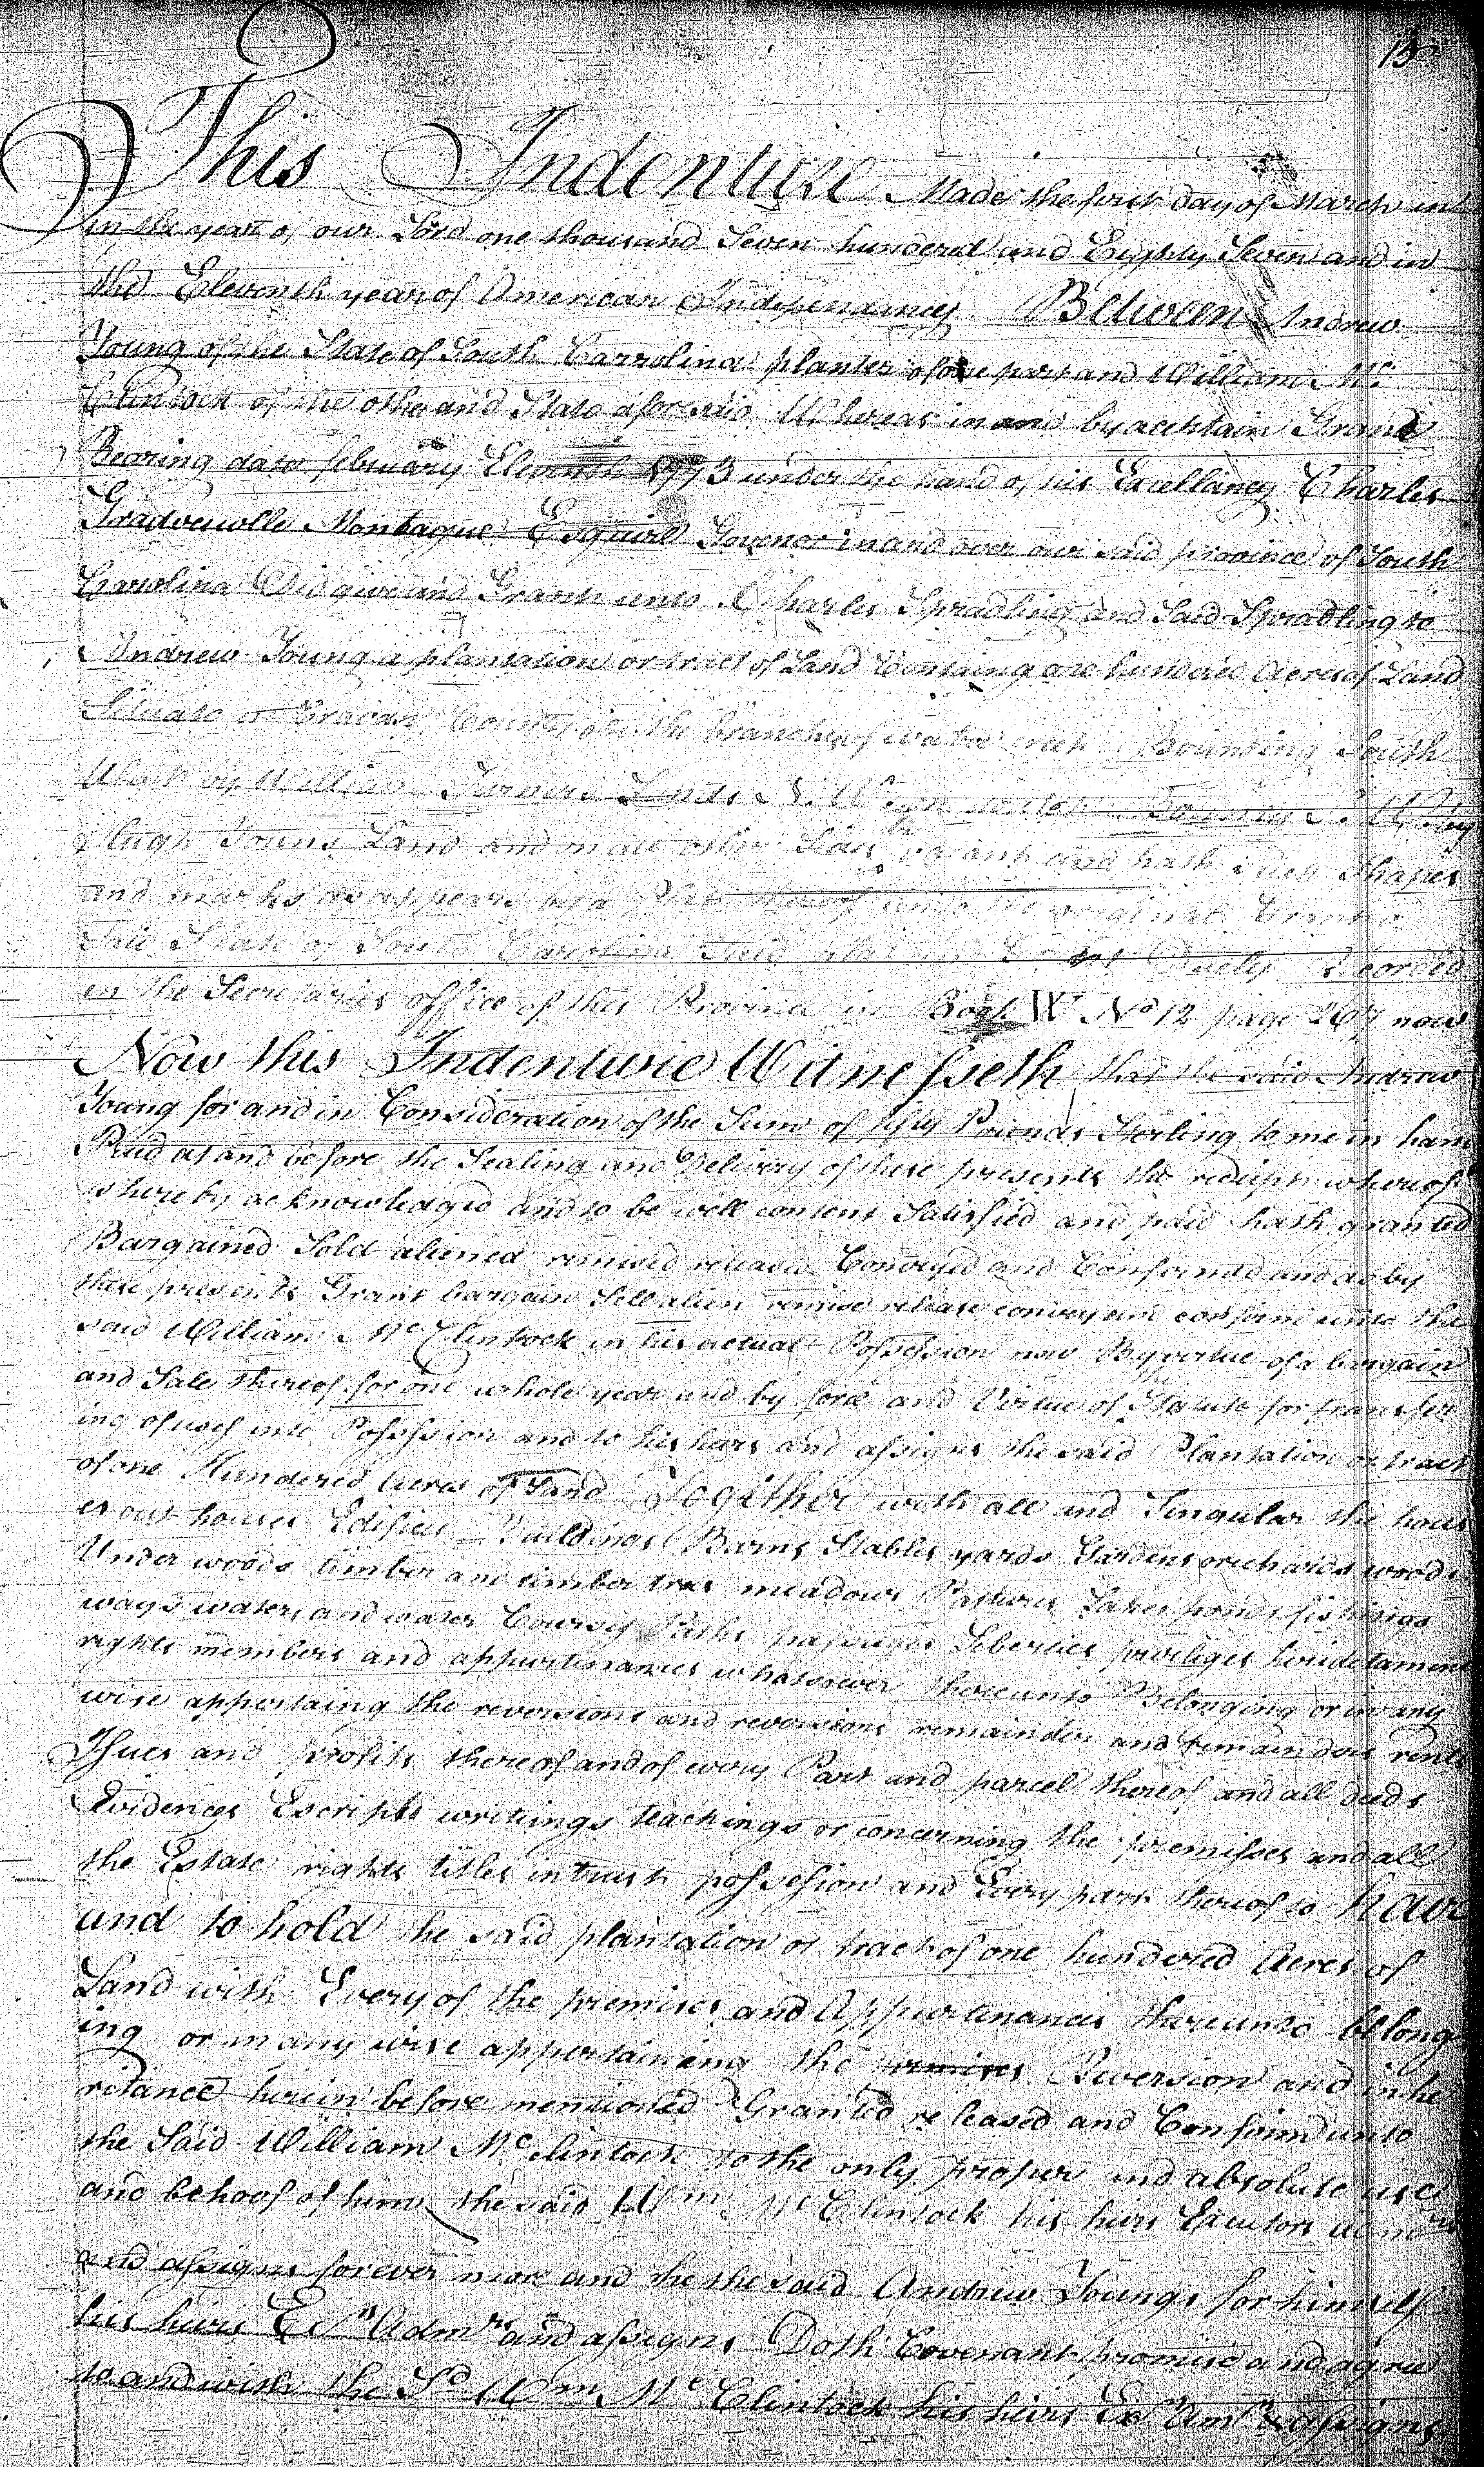 13
This Indenture Made the first day of March in
in the year of our Lord one thousand Seven hundered and Eighty Seven and in
the Eleventh year of American Independancy Between Andrew
Young of the State of South Carrolina planter of one part and William Mc
Clintock of the other and State aforesaid Whereas in and by a certain Grand
Bearing date february Eleventh 1773 under the hand of his Excellancy Charles
Gradvewille Montague Esquire Govenor in and over our said province of South
Carolina Did give and Grant unto Charles Spradling and Said Spradling to
Andrew Young a plantation or tract of Land Containg one hundred Acres of Land
Situate in Craven County on the branches of creek Bounding South
West by William Turners Lands N. W.
Hugh Youns Land and on all other Sides vacant and hath such Shapes
and marks as appears by a Plat thereof original Grant
Said State of South Carrolina Duely Recorded
in the Secretaries office of this Province in Book W No 12 page 267 now
Now this Indenturie Witnesseth that the said Andrew
Young for and in Consideration of the Sum of fifty Pounds Sterling to me in han
Paid at and before the Sealing and Delivery of these presents the reciept whereof
is hereby acknowledged and to be well content Satisfied and paid hath granted
Bargained Sold aliened remised released Conveyed and Confirmed and do by
these presents Grant bargain Sell alien remise release convey and confirm unto the
said William McClintock in his actual Possession now By virtue of a bargain
and Sale thereof for one whole year and by force and Virtue of Statute for transfer
ing of uses into Possession and to his heirs and assigns the said Plantation or tract
of one Hundered Acres of Land Together with all and Singular the hous
es out houses Edifices Buildings Barns Stables yards Gardens orichards woods
Under woods timber and timber trees meadows Pastures Lakes ponds fishings
ways waters and water Courses Paths passages Liberties priviliges heridetament
rights members and appurtinances whatsoever thereunto Belonging or in any
wise appertaing the reversions and reversions remainder and remainders rents
Issues and profits thereof and of every Part and parcel thereof and all deeds
Evidences Escripts writeings teachings or concerning the premisses and all
the Estate rights titles intrust possession and Every part thereof to have
and to hold the said plantation or tract of one hundered Acres of
Land with Every of the premises and Appurtinances thereunto belong
ing or in any wise appertaining the premises Reversion and inhe
ritance herein before mentioned Granted released and Confirmd unto
the Said William Mcclintock to the only proper and absolute use
and behoof of him the said Wm McClintock his heirs Executors admrs
and assigns forever more and he the said Andrew Youngs for himself
his heirs Exrs Admrs and assigns Doth Covenant promise and agree
to and with the Sd Wm McClintock his heirs Exr Amr & assigns